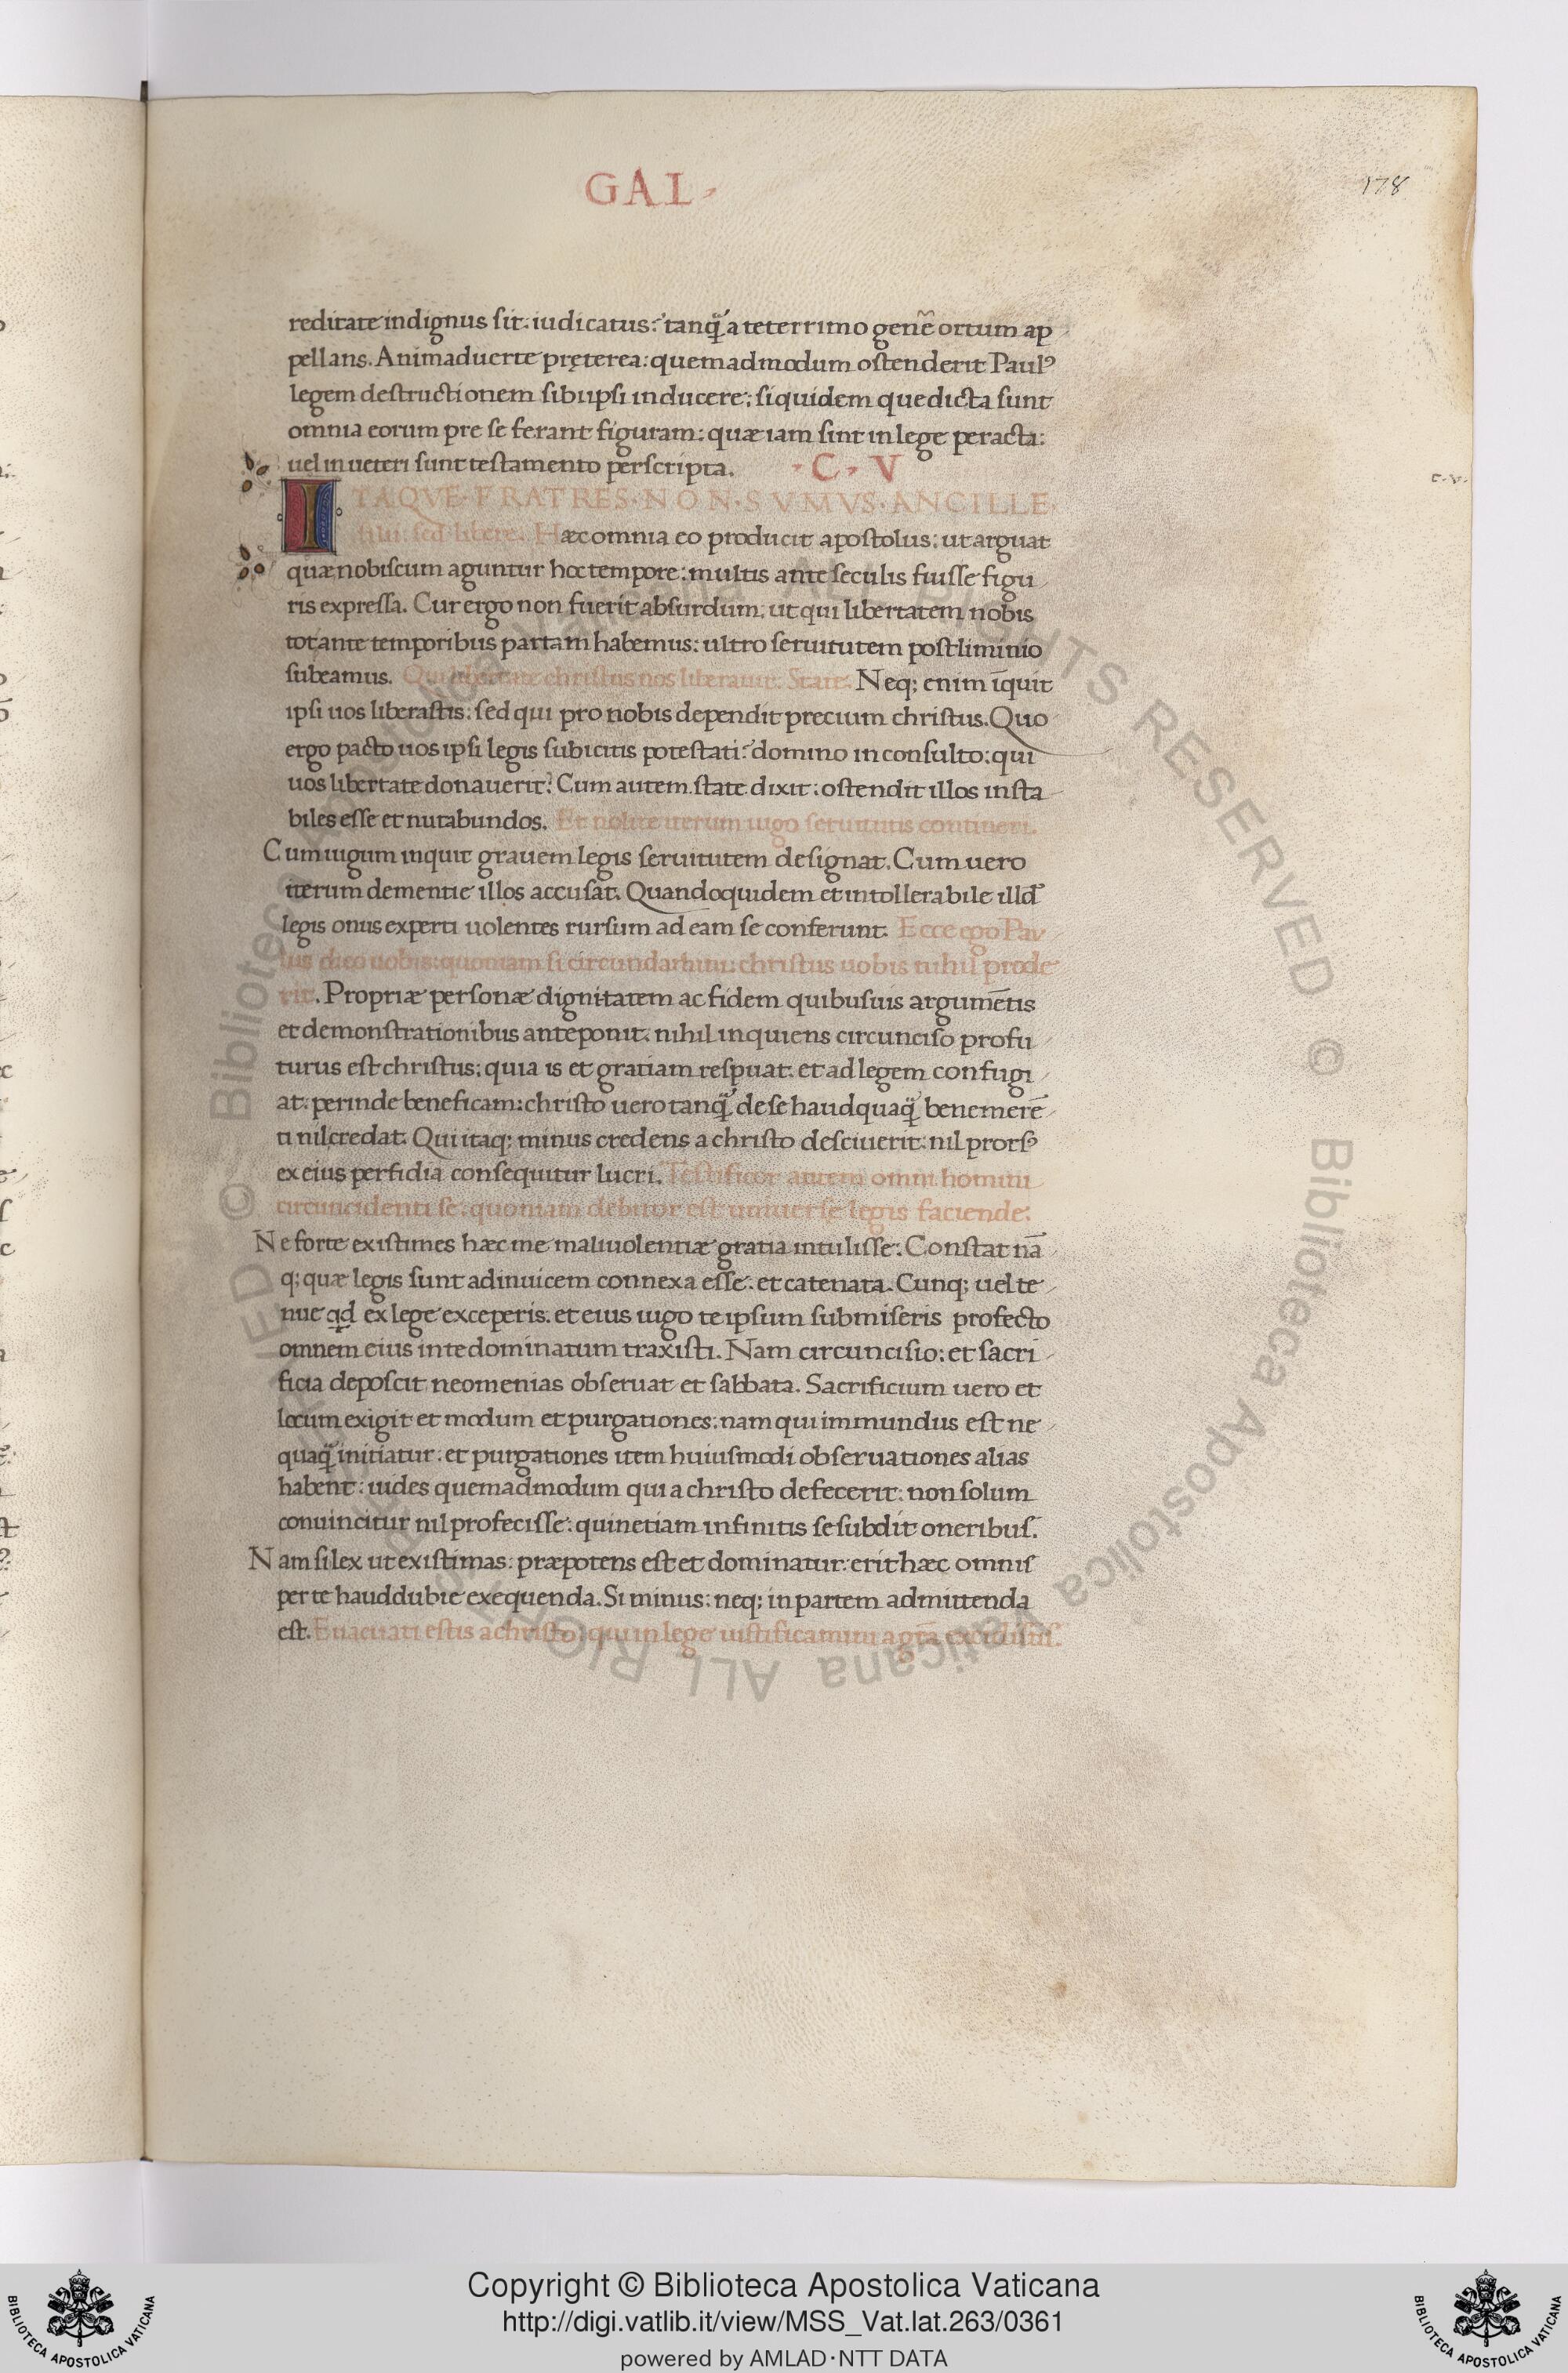 GAL
178
reditate indignus sit: iudicatus: tanq̃ a teterrimo genẽ ortum ap
pellans. Animaduerte pręterea: quemadmodum ostenderit Paulꝰ
legem destructionem sibiipsi inducere: siquidem que dicta sunt
omnia eorum pre se ferant figuram: quæ iam sint in lege peracta:
uel in ueteri sunt testamento perscripta. · C · V
c. v.
ITAQVE · FRATRES · NON · SVMVS · ANCILLE
filii: sed libere. Hæc omnia eo producit apostolus: ut arguat
quæ nobiscum aguntur hoc tempore: multis ante seculis fuisse figu
ris expressa. Cur ergo non fuerit absurdum: ut qui libertatem nobis
tot ante temporibus partam habemus: ultro seruitutem postliminio
subeamus. Qui libertate christus nos liberauit. State. Neq; enim īquit
ipsi uos liberastis: sed qui pro nobis dependit precium christus. Quo
ergo pacto uos ipsi legis subicitis potestati: domino inconsulto: qui
uos libertate donauerit? Cum autem state dixit: ostendit illos insta
biles esse et nutabundos. Et nolite iterum iugo seruitutis contineri.
Cum iugum inquit grauem legis seruitutem designat. Cum uero
iterum dementie illos accusat. Quandoquidem et intollerabile illd̄
legis onus experti uolentes rursum ad eam se conferunt. Ecce ego Pau
lus dico uobis: quoniam si circundamini: christus uobis nihil prode
rit. Propriæ personæ dignitatem ac fidem quibusuis argumētis
et demonstrationibus anteponit. nihil inquiens circunciso profu
turus est christus: quia is et gratiam respuat. et ad legem confugi
at: perinde beneficam: christo uero tanq̃ de se haudquaq̃ benemerē
ti nil credat. Qui itaq; minus credens a christo desciuerit: nil prorsꝰ
ex eius perfidia consequitur lucri. Testificor autem omni homini
circuncidenti se: quoniam debitor est uniuerse legis faciende:
Ne forte existimes hæc me maliuolentiæ gratia intulisse. Constat nā
q; quæ legis sunt adinuicem connexa esse: et catenata. Cunq; uel te
nue qd ex lege exceperis. et eius iugo te ipsum submiseris profecto
omnem eius in te dominatum traxisti. Nam circuncisio: et sacri
ficia deposcit neomenias obseruat et sabbata. Sacrificium uero et
locum exigit et modum et purgationes: nam qui immundus est ne
quaq̃ initiatur: et purgationes item huiusmodi obseruationes alias
habent: uides quemadmodum qui a christo defecerit: non solum
conuincitur nil profecisse: quinetiam infinitis se subdit oneribus.
Nam si lex ut existimas: præpotens est et dominatur: erit hæc omnis
per te hauddubie exequenda. Si minus: neq; in partem admittenda
est. Euacuati estis a christo: qui in lege iustificamini a gr̄a excidistis.
© Biblioteca Apostolica Vaticana ALL RIGHTS RESERVED © Biblioteca Apostolica Vaticana ALL RIGHTS RESERVED
Copyright © Biblioteca Apostolica Vaticana
http://digi.vatlib.it/view/MSS_Vat.lat.263/0361
powered by AMLAD·NTT DATA
BIBLIOTECA APOSTOLICA VATICANA
BIBLIOTECA APOSTOLICA VATICANA